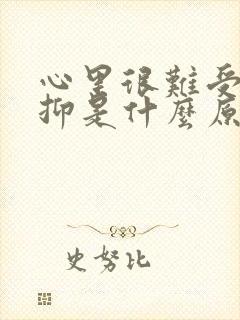 心里很難受
抑是什麼原
史努比